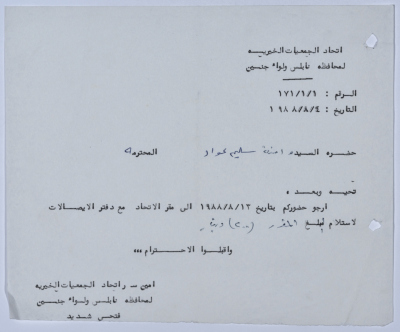 اتحاد الجمعيات الخيريه
لمحافظة نابلس ولواء جنين
الرقم : ١٧١/١/٦
التاريخ : ١٩٨٨/٨/٤
حضره السيده امنة سليم عواد المحترمه
تحيه وبعد ،
ارجو حضوركم بتاريخ ١٩٨٨/٨/١٣ الى مقر الاتحاد مع دفتر الايصالات
لاستلام مبلغ دينار
واقبلوا الاحترام ،،،
امين سر اتحاد الجمعيات الخيريه
لمحافظة نابلس ولواء جنين
فتحي شديد